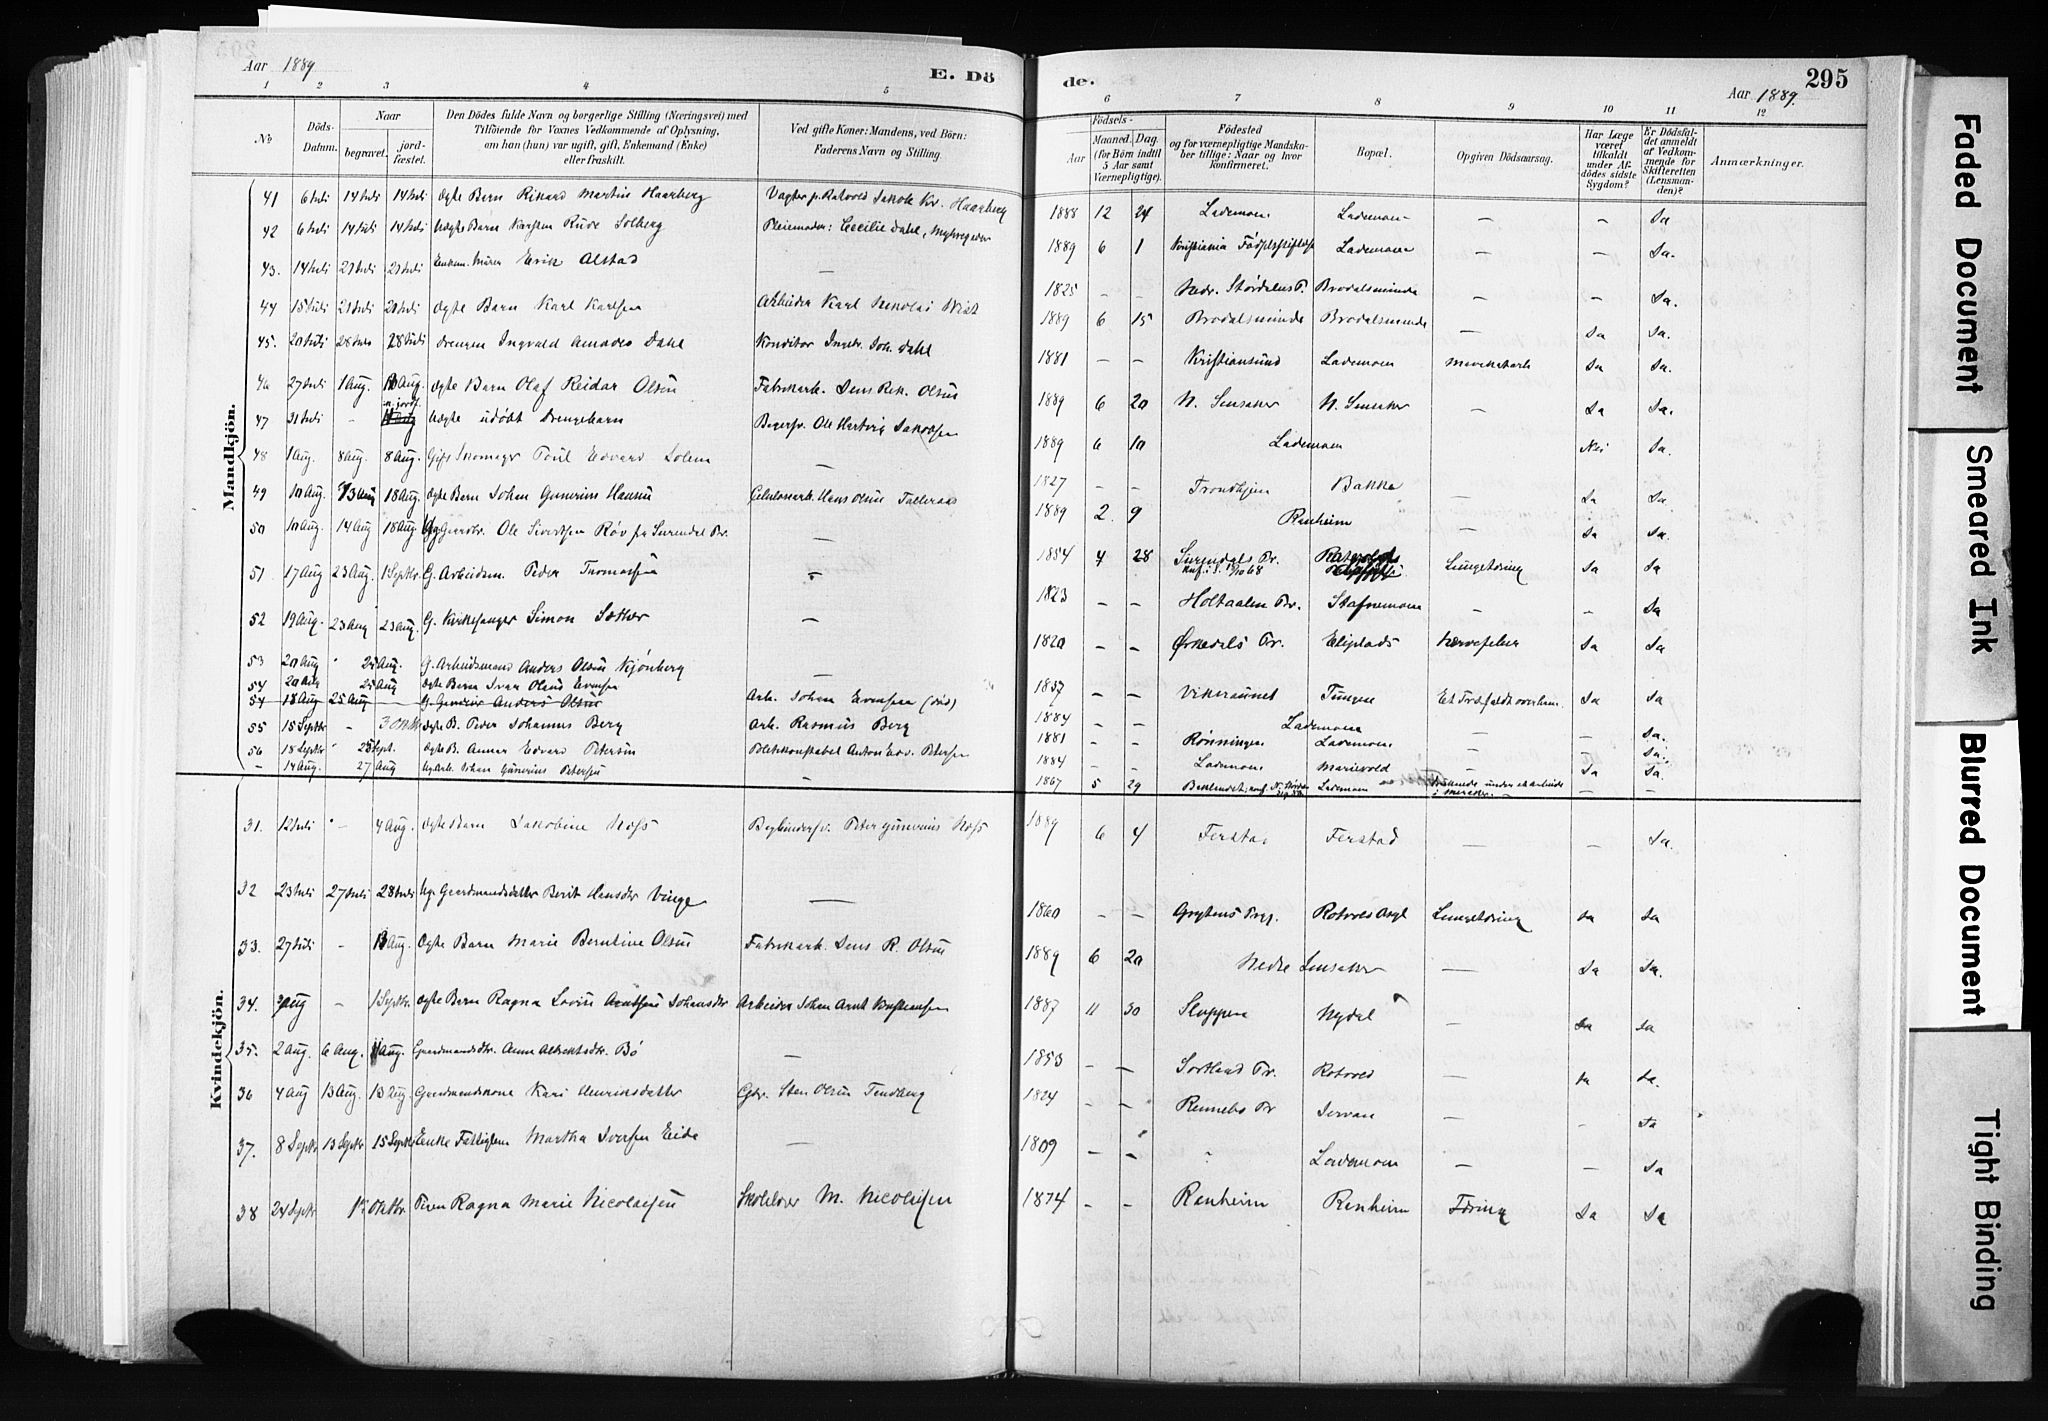 295
Aar 1889
E. Dö de.
Aar 1889.
1 2 3 4 5 6 7 8 9 10 11 12
№
Döds-Datum.
Naar
begravet.
jord-fæstet.
Den Dödes fulde Navn og borgerlige Stilling (Næringsvei) med
Tilføiende for Voxnes Vedkommende af Oplysning,
om han (hun) var ugift, gift, Enkemand (Enke)
eller fraskilt.
Ved gifte Koner: Mandens, ved Börn:
Faderens Navn og Stilling.
Födsels-
Aar
Maaned. Dag.
(for Börn indtil
5 Aar samt
Værnepligtige).
Födested
og for værnepligtige Mandska-
ber tillige: Naar og hvor
konfirmeret.
Bopæl.
Opgiven Dödsaarsag.
Har Læge
været
tilkaldt
under Af-
dödes sidste
Sygdom?
Er Dödsfal-
det anmeldt
af Vedkom-
mende for
Skifteretten
(Lensman-
den)?
Anmærkninger.
Mandkjön.
41 6 Juli 14 Juli 14 Juli Ægte Barn Rikard Martin Haarberg Vagter p. Rotvold Jakob Kr. Haarberg 1888 12 24 Lademoen Lademoen – – Ja
42 6 Juli 14 Juli 14 Juli Uægte Barn Karsten Rude Solberg Pleiemoder: Cecilie Dahl, 1889 6 1 Kristiania Lademoen – – Ja.
43. 14 Juli 21 Juli 21 Juli Enkem. Murer Erik Alstad – 1825 – – Nedr. Stördalens P. Brodalsminde – – Ja.
44 15 Juli 21 Juli 21 Juli Ægte Barn Karl Karlsen Arbeider Karl Nikolai Kvist 1889 6 15 Brodalsminde Brodalsminde – Ja Ja.
45. 20 Juli 28 Juli 28 Juli Drengen Ingvald Amandus Dahl Konditor Ingebr. Joh. Dahl 1881 – – Kristiansund Lademoen Ja Ja.
46 27 Juli 1 Aug. Aug. Ægte Barn Olaf Reidar Olsen Fabrikarb. Jens Rik. Olsen 1889 6 20 N. Lensaker N. Lensaker – Ja Ja.
47 31 Juli – Uægte udöbt Drengebarn Ole Hartvig Jakobsen 1889 6 10 Lademoen Nei Ja.
48 1 Aug. 8 Aug. 8 Aug. Gift Skomager Poul Edvard Solem – 1827 – – Trondhjem Bakke – Ja Ja
49 10 Aug. 13 Aug 18 Aug. Ægte Barn Johan Gunerius Hansen Celulosearb. Hans Olsen 1889 2 9 Ranheim – Ja Ja.
50 10 Aug. 14 Aug 18 Aug Ole Sivertsen Röv fra Surendal Pr. – 1854 4 28 Surendals Pr. Lungetæring Ja Ja
51 17 Aug 23 Aug. 1 Septbr. G. Arbeidsm. Peder Thomassen – 1823 – – Holtaalen Pr. Stafnemoen – – Ja
52 19 Aug. 23 Aug 23 Aug. G. Kirkesanger Simon Sæther – 1820 – – Ørkedals Pr. Eliplads Ja Ja
53 20 Aug " 25 Aug. G. Arbeidsmand Anders Olsen Kjönberg – 1837 – – Vikeraunet Tungen Ja Ja
54 20 Aug 25 Aug Ægte Barn Ivar Olaus Evensen Arb. Johan Evensen (död) 1884 – – Lademoen – Ja.
54 18 Aug 25 Aug G. Anders Olsen
55 15 Septbr – 3 Oktbr Ægte B. Peder Johannes Berg Arb. Rasmus Berg 1881 – – Rönningen Lademoen – Ja.
56 18 Septbr " 23 Sept. Ægte B. Anna Edvard Petersen Politikonstabel Anton Edv. Petersen 1884 – – Lademoen Marievold – Ja Ja.
– 14 Aug. 27 Aug Ug. Arb. Johan Gunerius Petersen – 1867 5 29 Lademoen Druknede under – –
Kvindekjön.
31. 12 Juli – 4 Aug. Ægte Barn Jakobine Hofs Peter Gunerius Hofs 1889 6 4 Ferstad Ferstad – Ja.
32 23 Juli 27 Juli 28 Juli Ug. Gaardmandsdatter Berit Hansdtr Vinge – 1860 – – Grytens Prgj. Rotvold Asyl Lungetæring Ja Ja
33. 27 Juli – Aug. Ægte Barn Marie Berntine Olsen Fabrikarb. Jens R. Olsen 1889 6 20 Nedre Lensaker – Ja Ja.
34. Aug – 1 Septbr. Ægte Barn Ragna Lovise Arntsen Johansdtr Arbeider Johan Arnt 1887 11 30 Sluppen Nydal – Ja Ja
35. 2 Aug. 6 Aug. 11 Aug. Gaardmandsdtr. Anne Albretsdtr. Bö – 1853 – – Sortland Pr. Rotvold – Ja Ja.
36 4 Aug 13 Aug. 13 Aug. Gaardmandskone Kari Henriksdatter Gbr. Sten Olsen Tendberg 1824 – – Rennebo Pr – – Ja
37. 8 Septbr 13 Septbr 15 Septbr Enke Fattiglem Martha Iversen Eide – 1809 – – Lademoen – – Ja
38 24 Septbr 1 Oktbr. Piken Ragna Marie Nicolaisen Skolelærer M. Nicolaisen 1874 – – Ranheim Ranheim Tæring Ja Ja
Faded Document
Smeared Ink
Blurred Document
Tight Binding